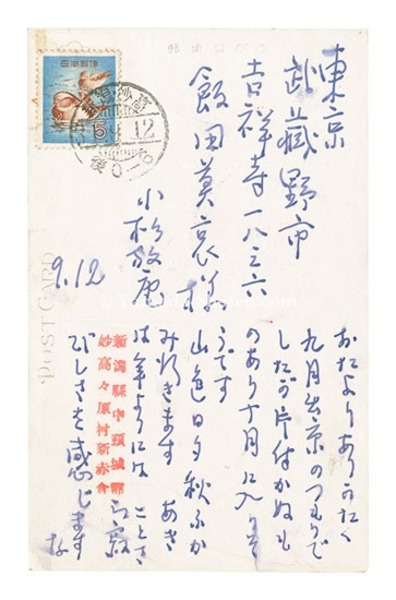 日本郵便
5
12
后0-6
東京
武蔵野市
吉祥寺一八三六
飯田莫哀様
小杉放庵
9.12
POST CARD
新潟縣中頸城郡
妙高々原村新赤倉
おたよりありがたく
九月出京のつもりで
したが片付かぬも
のあり十月に入りさ
うです
山色日夕秋ふか
み行きます あき
は年よりには ことさ
ら寂
びしさを感じます